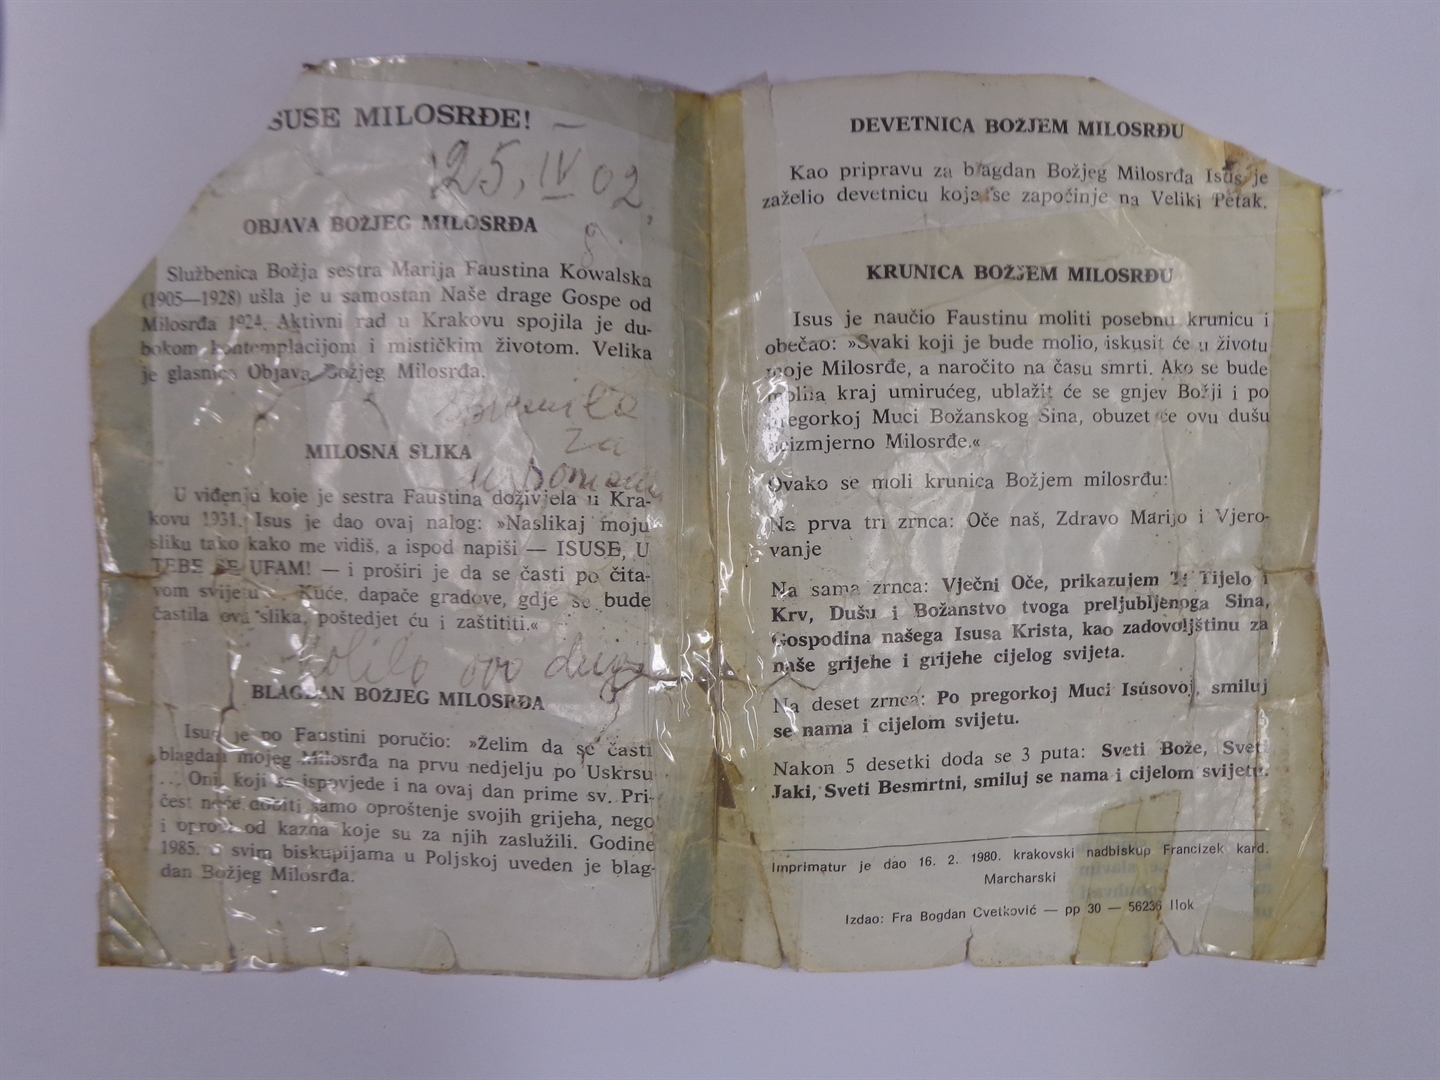 SUSE MILOSRĐE!
25. IV 02.
OBJAVA BOŽJEG MILOSRĐA
Službenica Božja sestra Marija Faustina Kowalska
(1905—1928) ušla je u samostan Naše drage Gospe od
Milosrđa 1924. Aktivni rad u Krakovu spojila je du-
bokom kontemplacijom i mističkim životom. Velika
je glasnica Objava Božjeg Milosrđa.
za
MILOSNA SLIKA
U viđenju koje je sestra Faustina doživjela u Kra-
kovu 1931. Isus je dao ovaj nalog: »Naslikaj moju
sliku tako kako me vidiš, a ispod napiši — ISUSE, U
TEBE SE UFAM! — i proširi je da se časti po čita-
vom svijetu. Kuće, dapače gradove, gdje se bude
častila ova slika, poštedjet ću i zaštititi.«
BLAGDAN BOŽJEG MILOSRĐA
Isus je po Faustini poručio: »Želim da se časti
blagdan mojeg Milosrđa na prvu nedjelju po Uskrsu
... Oni, koji se ispovjede i na ovaj dan prime sv. Pri-
čest neće dobiti samo oproštenje svojih grijeha, nego
i oprost od kazna koje su za njih zaslužili. Godine
1985. u svim biskupijama u Poljskoj uveden je blag-
dan Božjeg Milosrđa.
DEVETNICA BOŽJEM MILOSRĐU
Kao pripravu za blagdan Božjeg Milosrđa Isus je
zaželio devetnicu koja se započinje na Veliki Petak.
KRUNICA BOŽJEM MILOSRĐU
Isus je naučio Faustinu moliti posebnu krunicu i
obečao: »Svaki koji je bude molio, iskusit će u životu
moje Milosrđe, a naročito na času smrti. Ako se bude
molila kraj umirućeg, ublažit će se gnjev Božji i po
pregorkoj Muci Božanskog Sina, obuzet će ovu dušu
neizmjerno Milosrđe.«
Ovako se moli krunica Božjem milosrđu:
Na prva tri zrnca: Oče naš, Zdravo Marijo i Vjero-
vanje
Na sama zrnca: Vječni Oče, prikazujem Ti Tijelo i
Krv, Dušu i Božanstvo tvoga preljubljenoga Sina,
Gospodina našega Isusa Krista, kao zadovoljštinu za
naše grijehe i grijehe cijelog svijeta.
Na deset zrnca: Po pregorkoj Muci Isusovoj, smiluj
se nama i cijelom svijetu.
Nakon 5 desetki doda se 3 puta: Sveti Bože, Sveti
Jaki, Sveti Besmrtni, smiluj se nama i cijelom svijetu.
Imprimatur je dao 16. 2. 1980. krakovski nadbiskup Francizek kard.
Marcharski
Izdao: Fra Bogdan Cvetković — pp 30 — 56236 Ilok